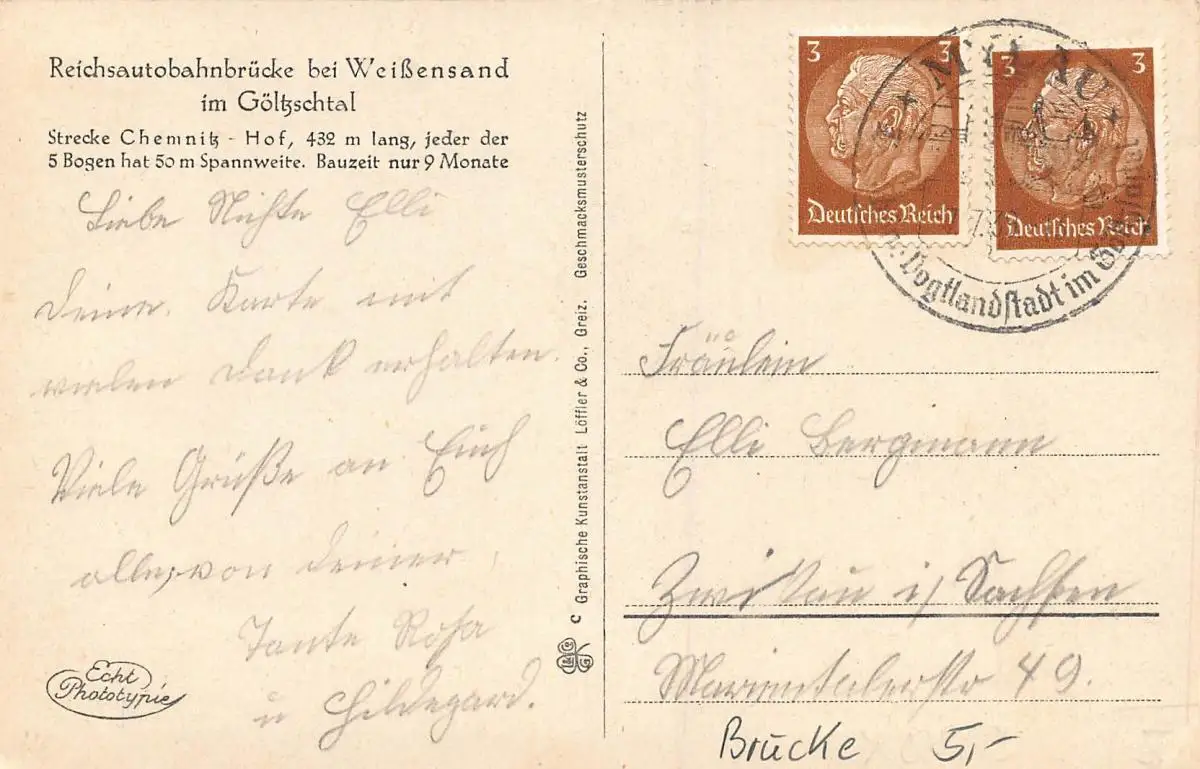 Reichsautobahnbrücke bei Weißensand
im Göltzschtal
Strecke Chemnitz - Hof, 432 m lang, jeder der
5 Bogen hat 50 m Spannweite. Bauzeit nur 9 Monate
Liebe Nichte Elli
Deine Karte mit
vielen Dank erhalten.
Viele Grüße an Euch
alle, von Deiner
Tante Rosa
u Hildegard.
Echt
Phototypie
C Graphische Kunstanstalt Löffler & Co., Greiz. Geschmacksmusterschutz
3 3
Deutsches Reich
3 3
Deutsches Reich
MYLAU
Vogtlandstadt im
Fräulein
Elli Bergmann
Zwickau i/ Sachsen
Marientalerstr 49.
Brücke 5,-